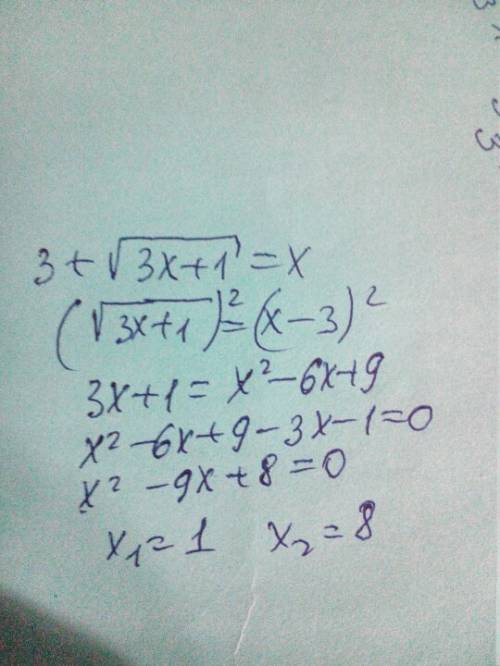 3 + √(3x+1) = x
(√(3x+1))² = (x-3)²
3x+1 = x²-6x+9
x²-6x+9-3x-1=0
x²-9x+8=0
x₁=1 x₂=8